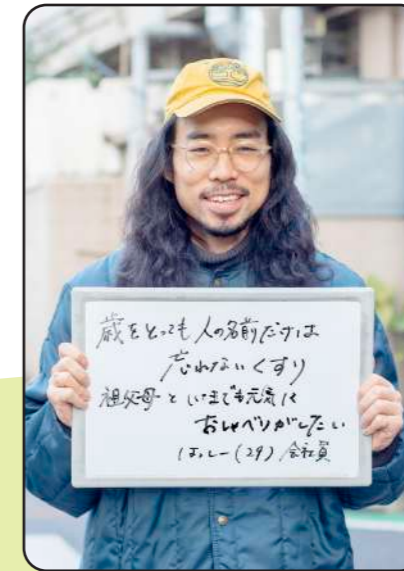 歳をとっても人の名前だけは
忘れないくすり
祖父母といつまでも元気に
おしゃべりがしたい
ほっしー(29) 会社員